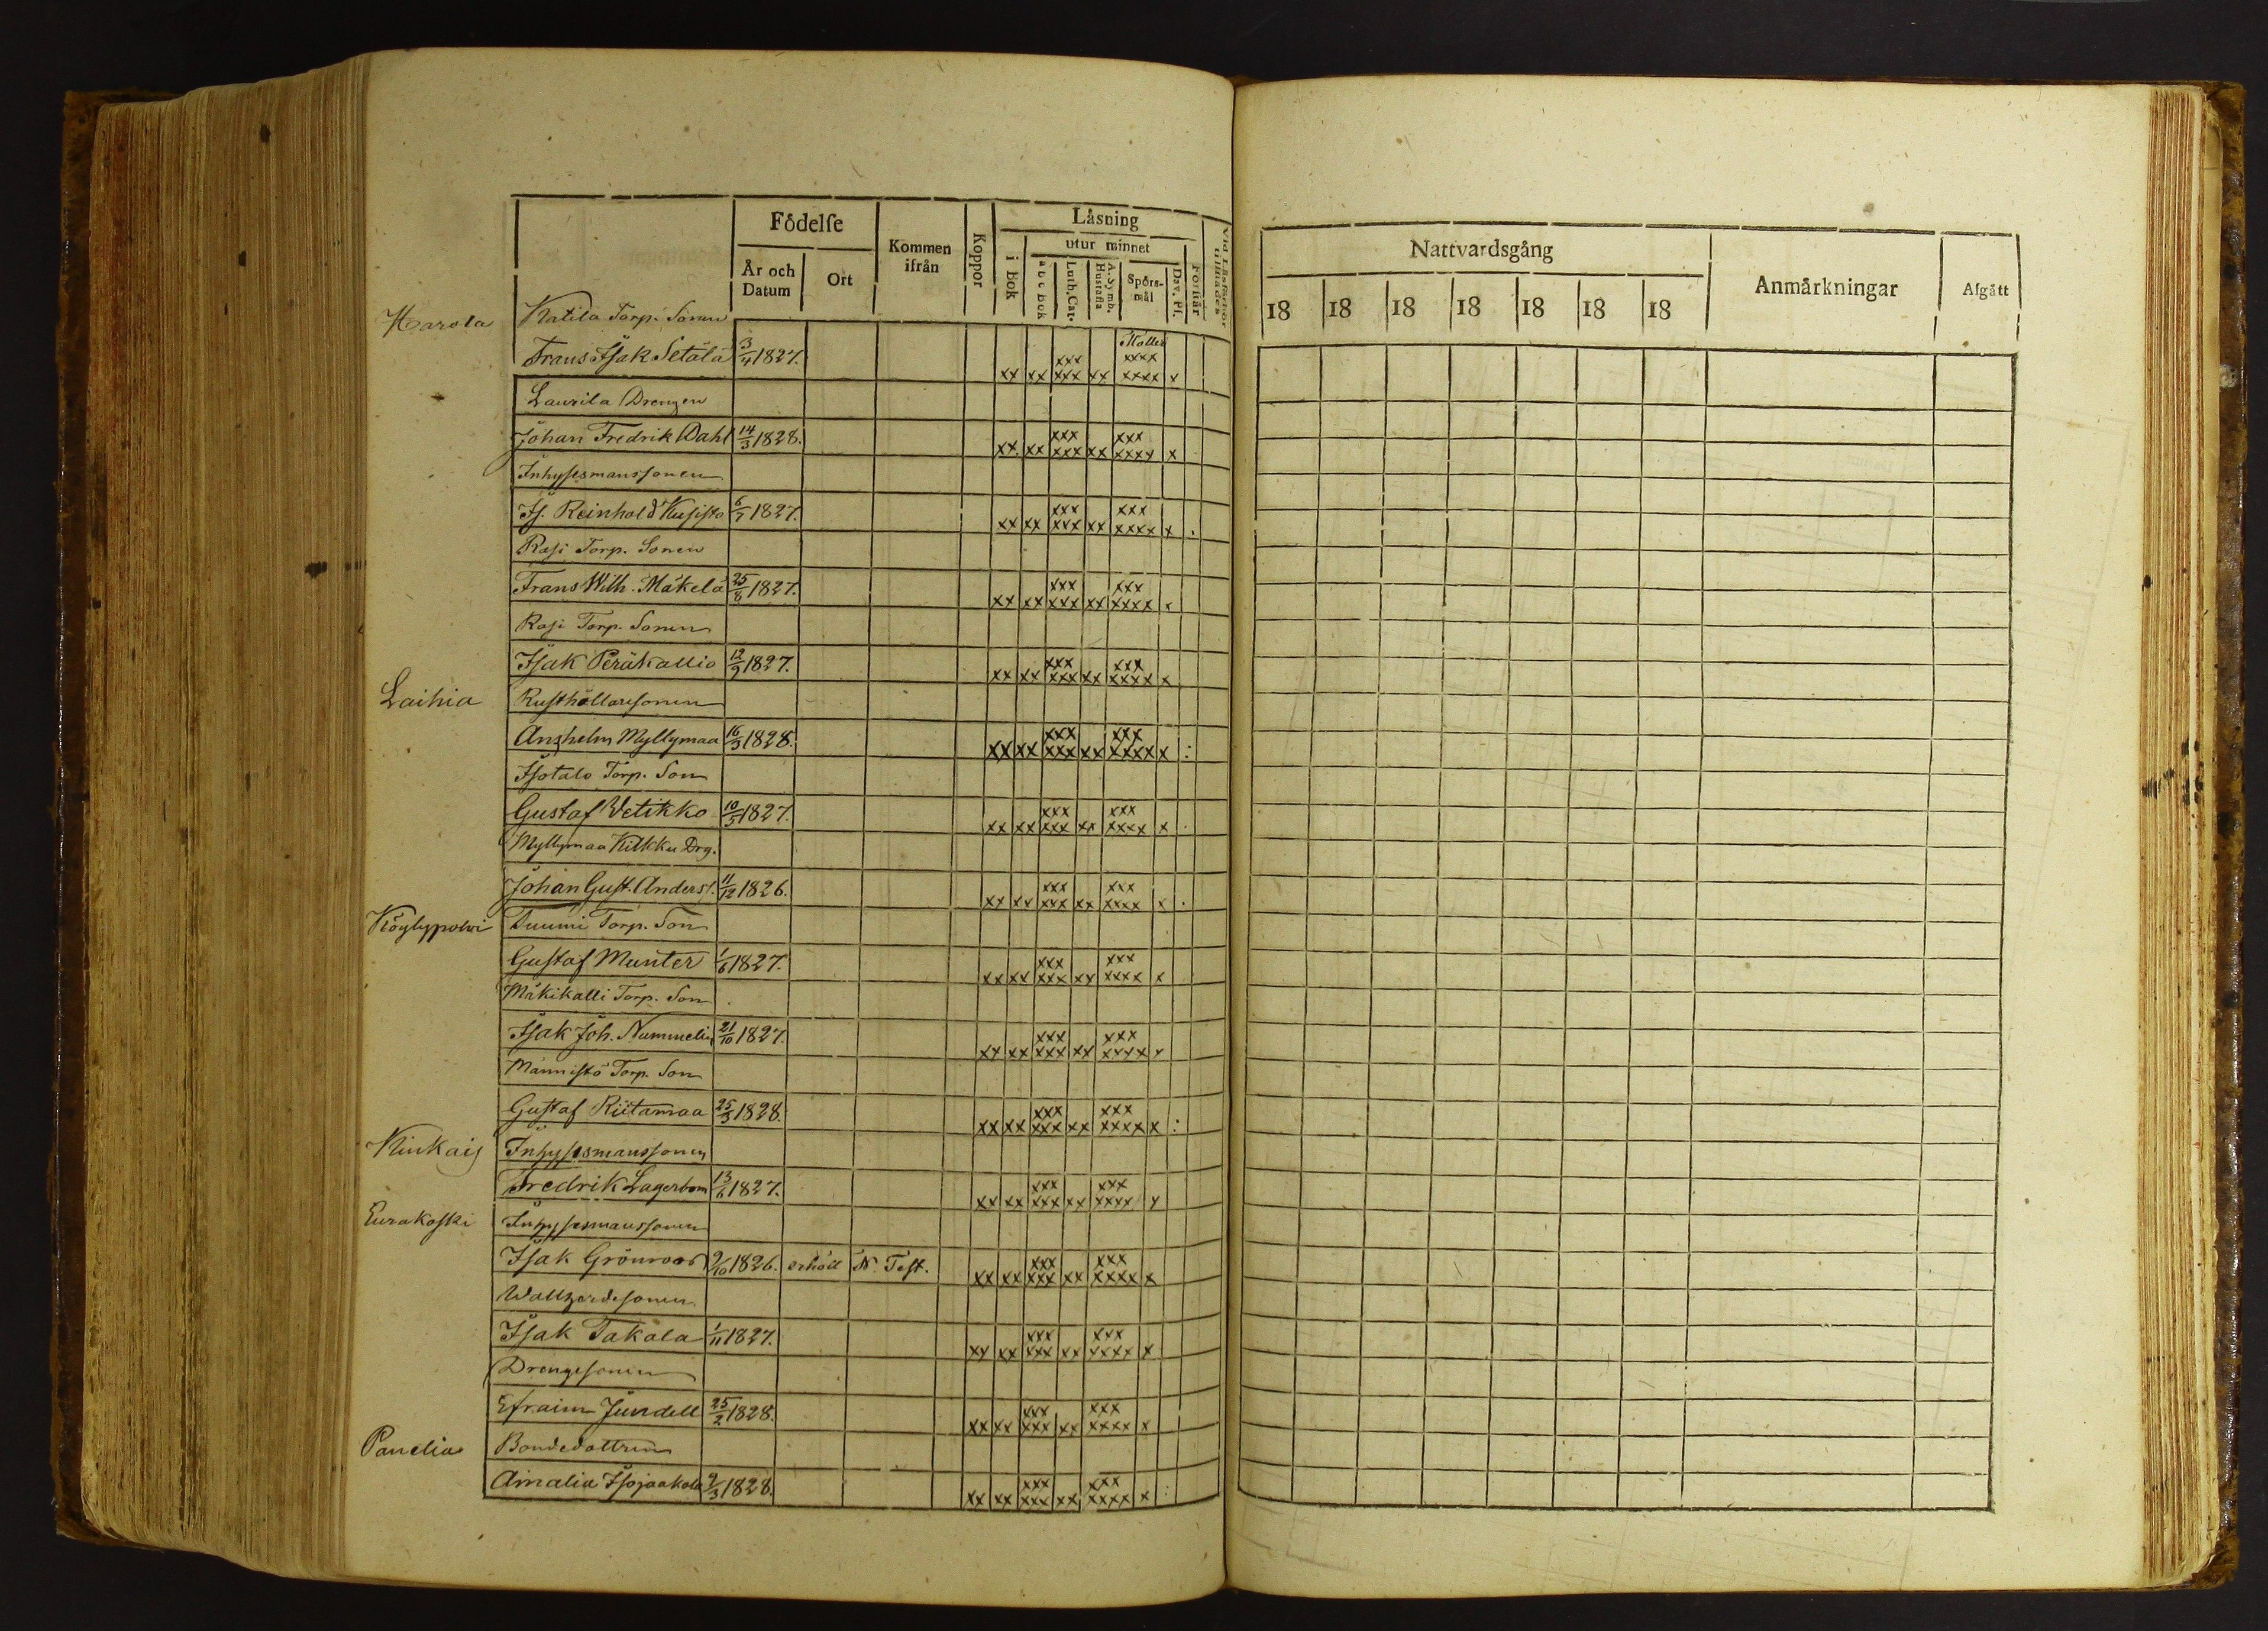 Födelse
Kommen ifrån
Koppor
Låsning
Vid Låsförhör tillstädes
År och Datum
Ort
i Bok
utur minnet
Förhör
abc bok
Luth. Cat.
A. Symb. Hustafla
Spörsmål
Dav. Ps.
Nattvardsgång
Anmårkningar
Afgått
18 18 18 18 18 18 18
Harola Katila Torp. Sonen
Möller
Frans Isak Setälä 3/4 1827. xxx xxxx
xx xx xxx xx xxxx x
Laurila Drengen
Johan Fredrik Dahl 14/3 1828. xxx xxx
xx xx xxx xx xxxx x
Inhysesmanssonen
Is. Reinhold Kusisto 6/7 1827. xxx xxx
xx xx xxx xx xxxx x .
Rasi Torp. Sonen
Frans Wilh. Mäkelä 25/8 1827. xxx xxx
xx xx xxx xx xxxx x
Rasi Torp. Sonen
Isak Peräkallio 12/9 1827. xxx xxx
xx xx xxx xx xxxx x
Laihia Rusthållaresonen
Anshelm Myllymaa 16/3 1828. xxx xxx
xx xx xxx xx xxxx x :
Isotalo Torp. Son
Gustaf Vetikko 10/5 1827. xxx xxx
xx xx xxx xx xxxx x .
Myllymaa Kilkku Drg.
Johan Gust. Anders. 11/12 1826. xxx xxx
xx xx xxx xx xxxx x .
Köylypolvi Tuumi Torp. Son
Gustaf Munter 1/6 1827. xxx xxx
xx xx xxx xx xxxx x
Mäkikalli Torp. Son
Isak Joh. Nummelin 21/10 1827. xxx xxx
xx xx xxx xx xxxx x
Männistö Torp. Son
Gustaf Riitamaa 25/3 1828. xxx xxx
xx xx xxx xx xxxx x :
Kiukais Inhysesmanssonen
Fredrik Lagerbom 13/6 1827. xxx xxx
xx xx xxx xx xxxx x
Eurakoski Inhysesmanssonen
Isak Grönroos 9/10 1826. erhöll N. Test. xxx xxx
xx xx xxx xx xxxx x
Wallgardesonen
Isak Takala 1/11 1827. xxx xxx
xx xx xxx xx xxxx x
Drengesonen
Efraim Jundell 25/2 1828. xxx xxx
xx xx xxx xx xxxx x
Panelia Bondedottren
Amalia Isojaakola 9/3 1828. xxx xxx
xx xx xxx xx xxxx x :